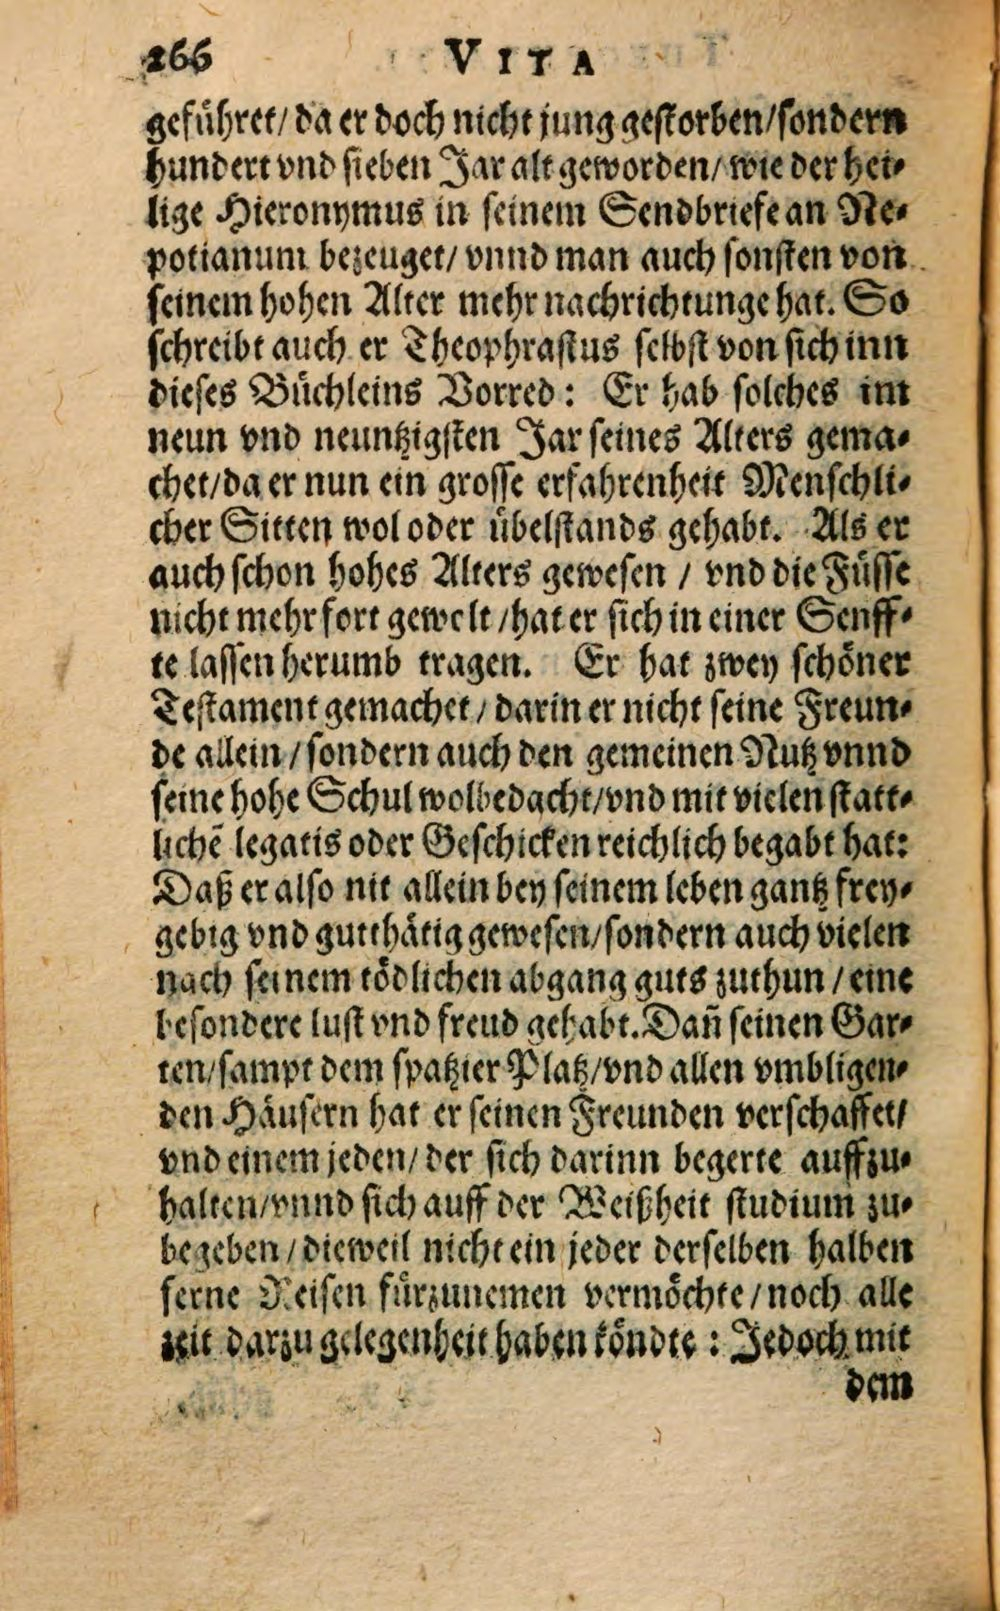 266 VITA
gefuͤhret/ da er doch nicht jung gestorben/ sondern
hundert vnd sieben Jar alt geworden/ wie der hei⸗
lige Hieronymus in seinem Sendbriefe an Ne⸗
potianum bezeuget/ vnnd man auch sonsten von
seinem hohen Alter mehr nachrichtunge hat. So
schreibt auch er Theophrastus selbst von sich inn
dieses Buͤchleins Vorred: Er hab solches im
neun vnd neuntzigsten Jar seines Alters gema⸗
chet/ da er nun ein grosse erfahrenheit Menschli⸗
cher Sitten wol oder uͤbelstands gehabt. Als er
auch schon hohes Alters gewesen / vnd die Fuͤsse
nicht mehr fort gewelt / hat er sich in einer Senff⸗
te lassen herumb tragen. Er hat zwey schoͤner
Testament gemachet / darin er nicht seine Freun⸗
de allein / sondern auch den gemeinen Nutz vnnd
seine hohe Schul wolbedacht/ vnd mit vielen statt⸗
lichẽ legatis oder Geschicken reichlich begabt hat:
Daß er also nit allein bey seinem leben gantz frey⸗
gebig vnd gutthaͤtig gewesen/ sondern auch vielen
nach seinem toͤdlichen abgang guts zuthun / eine
besondere lust vnd freud gehabt. Dañ seinen Gar⸗
ten/ sampt dem spatzier Platz/ vnd allen vmbligen⸗
den Haͤusern hat er seinen Freunden verschaffet/
vnd einem jeden/ der sich darinn begerte auffzu⸗
halten/ vnnd sich auff der Weißheit studium zu⸗
begeben / dieweil nicht ein jeder derselben halben
ferne Reisen fuͤrzunemen vermoͤchte / noch alle
zeit darzu gelegenheit haben koͤndte : Jedoch mit
dem